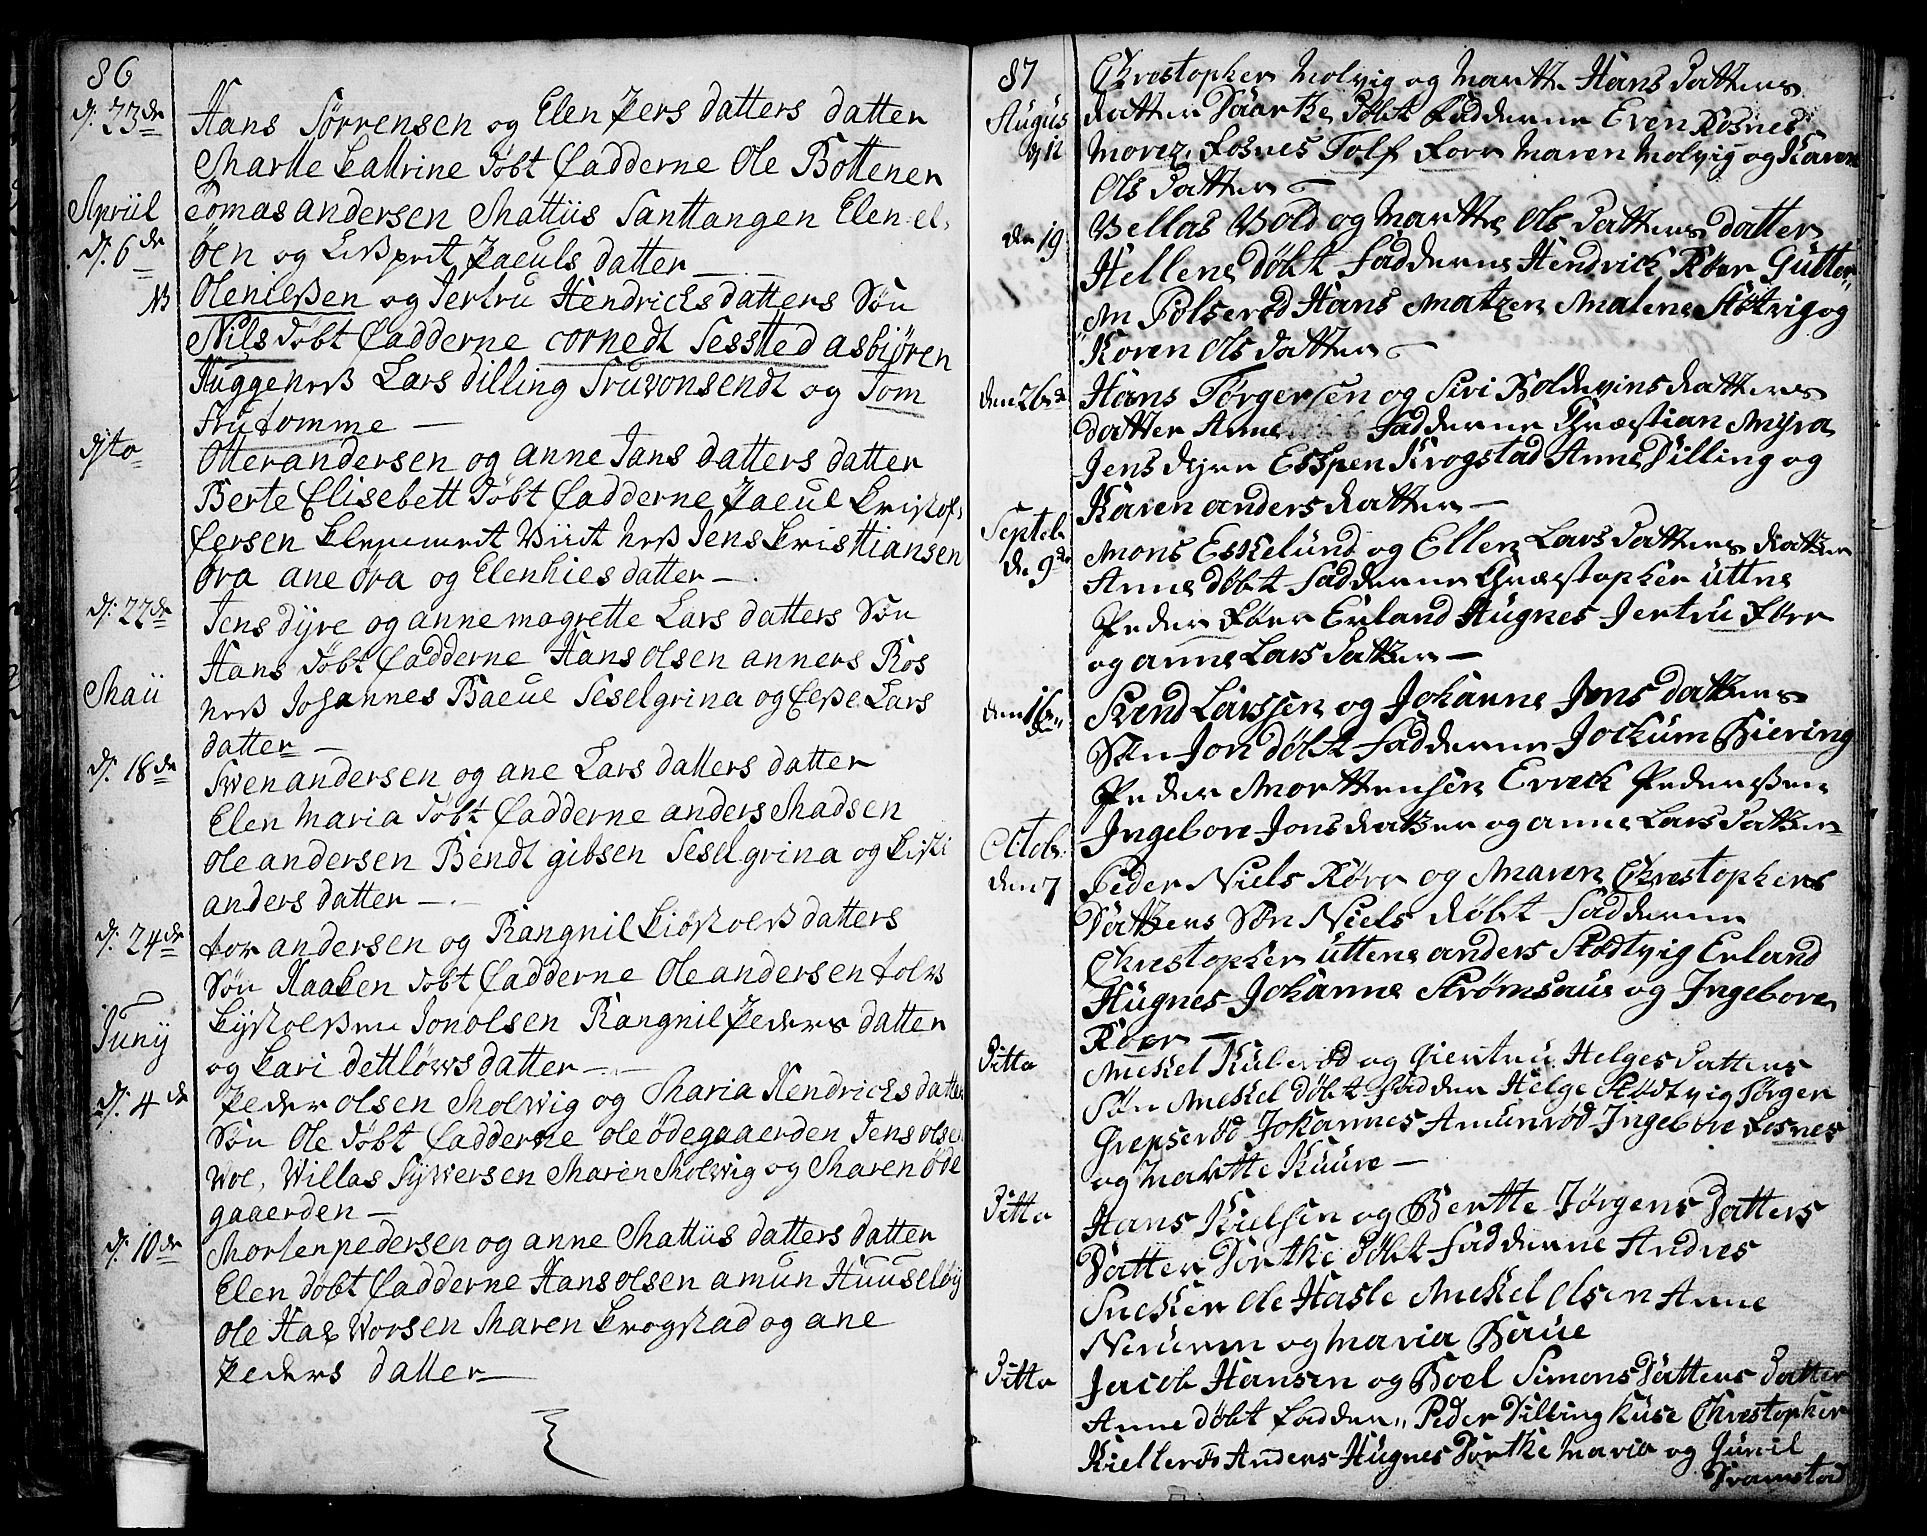 86
d: 23de
Hans Sørrensen og Elen Pers datters datter
Marte Katrine døbt fadderne Ole Bottener
Apriil
Tomas andersen Mattiis Santtangen Elen el,
d: 6de
øen og Lisprit Paeuls datter —
NB
Olenielsen og Jertru Hendrichs datters Søn
Nils døbt fadderne cornedt Sessted asbiøren
Huggenes Lars dilling Truvonsendt og Tom
Frutomme —
dito
Otterandersen og anne Jans datters datter
Berte Elisebett døbt fadderne Paeul Kristof,
fersen Klemmet Viist nes Jens Kristtiansen
øra ane øra og Elen hies datter —
d: 22de
Jens dyre og anne magrette Lars datters Søn
Hans døbt fadderne Hans olsen anners Ros
Maii
nes Johannes Baeue Seselgrina og Else Lars
datter —
d: 18de
Swen andersen og ane Lars datters datter
Elen Maria døbt fadderne anders Madsen
Ole andersen Bendt gibsen Seselgrina og Kisti
anders datter —
d: 24de
tor andersen og Rangnil Kiøstols datters
Søn Haaken døbt fadderne Ole andersen tolvs
Juny
Kystolsen Jon olsen Rangnil Peders datter
og Kari dettløws datter —
d: 4de
Peder olsen Molwig og Maria Hendrichs datter
Søn Ole døbt fadderne ole ødegaaerden Jens olsen
Wol, Willas Sywersen Maren Molwig og Maren øde
gaaerden —
d: 10de
Morten pedersen og anne Mattiis datters datter
Elen døbt fadderne Hans olsen amun Huuseløy
Ole Halworsen Maren Krogstad og ane
Peders datter —
87
Chrestopher Molvig og Marthe Hans Datters
Augus
datter Daarthe Døbt Fadderne Even Rosnes
d 12
Morez Fosnes Tolf Forr Maren Molvig og Karen
Ols Datter —
den 19
Vellas Vold og Marthe Ols Datters datter
Hellene døbt Fadderne Hendrick Røer Gutter
m Pølserød Hans Matzen Malene Støtvig og
Koren Ols datter —
den 26de
Hans Tørgersen og Siri Boldevins datters
datter Anne Fadderne Græstian Myra
Jens dyre Esspen Krogstad Anne Dilling og
Karen anders datter —
Septeb
den 9de
Mons Eskelund og Ellen Lars Datters datter
Anne døbt Fadderne Græstopher uttne
Peder Føer Erland Hugnes Jertru Førr
og anne Lars Datter —
den 16de
Svend Larssen og Johanne Jons datters
Søn Jon døbt Fadderne Jockum Biering
Peder Morttensen Errick Pedersen
Ingebore Jons datter og anne Lars Datter
Octob:
den 7
Peder Niels Rørr og Maren Chrestophers
Datters Søn Niels døbt Fadderne
Chrestopher uttene anders Stødtvig Erland
Hugnes Johanne Strømsaue og Ingebore
Roer —
Ditto
Mekel Kuberød og Giertru Helges Datters
Søn Mekel døbt Fadder Helge Stødtvig Tørger
Grepserød Johannes Amunrød Ingebore Fosnes
og Marthe Kuure —
Ditto
Hans Kielsen og Berthe Jørgens Datters
Datter Dorthe Døbt Fadderne Andres
Snekker Ole Hasle Mekel Olsen Anne
Neruren og Maria Baue
Ditto
Jacob Hansen og Boel Simons Datters Datter
Anne døbt Fadder,, Peder Dilling huse Chrestopher
Kiellerød Anders Hugnes Dorthe Maria og Gunil
Tramstad